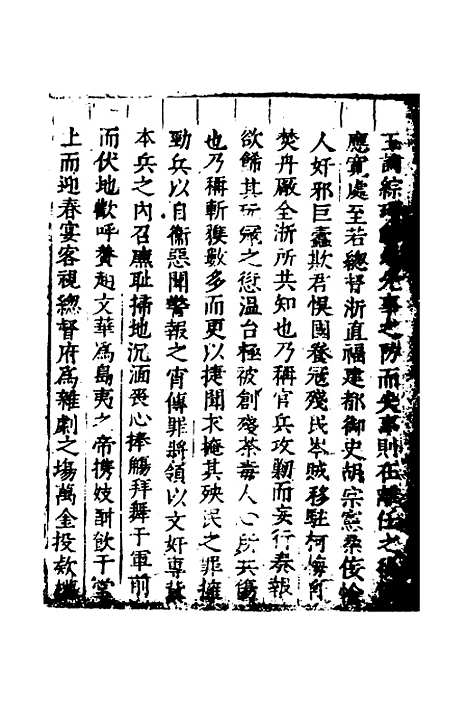 玉諭綜理於先事之防而失事則在離任之後
應實處至若總督浙直福建都御史胡宗憲桑俊憸
人奸邪巨蠹欺君悞國養冦殘民岑賊移駐柯梅所
焚丹厰全浙所共知也乃稱官兵攻勦而妄行奏報
欲餙其玩㓂之愆溫台極被創殘荼毒人心所共傷
也乃稱斬獲數多而更以捷聞求掩其殃民之罪擁
勁兵以自衞惡聞警報之宵傳罪將領以文奸專
本兵之內召廉耻掃地沉湎喪心捧觴拜舞于軍前
而伏地歡呼贊趙文華爲島夷之帝携妓酣飲于堂
上而迎春宴客視總督府爲雜劇之塲萬金投欵